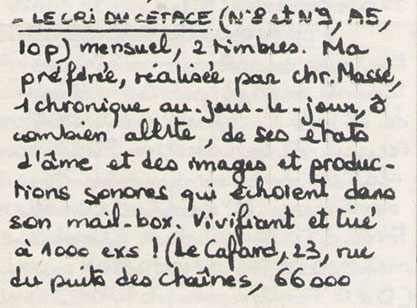 - LE CRI DU CÉTACÉ (N°8 et N°9, A5,
10p) mensuel, 2 timbres. Ma
préférée, réalisée par chr. Massé,
1 chronique au-jour-le-jour, ô
combien altité, de ses états
d'âme et des images et produc-
tions sonores qui échoient dans
son mail-box. Vivifiant et tiré
à 1000 exs ! (Le Cafard, 23, rue
du puits des chaînes, 66000